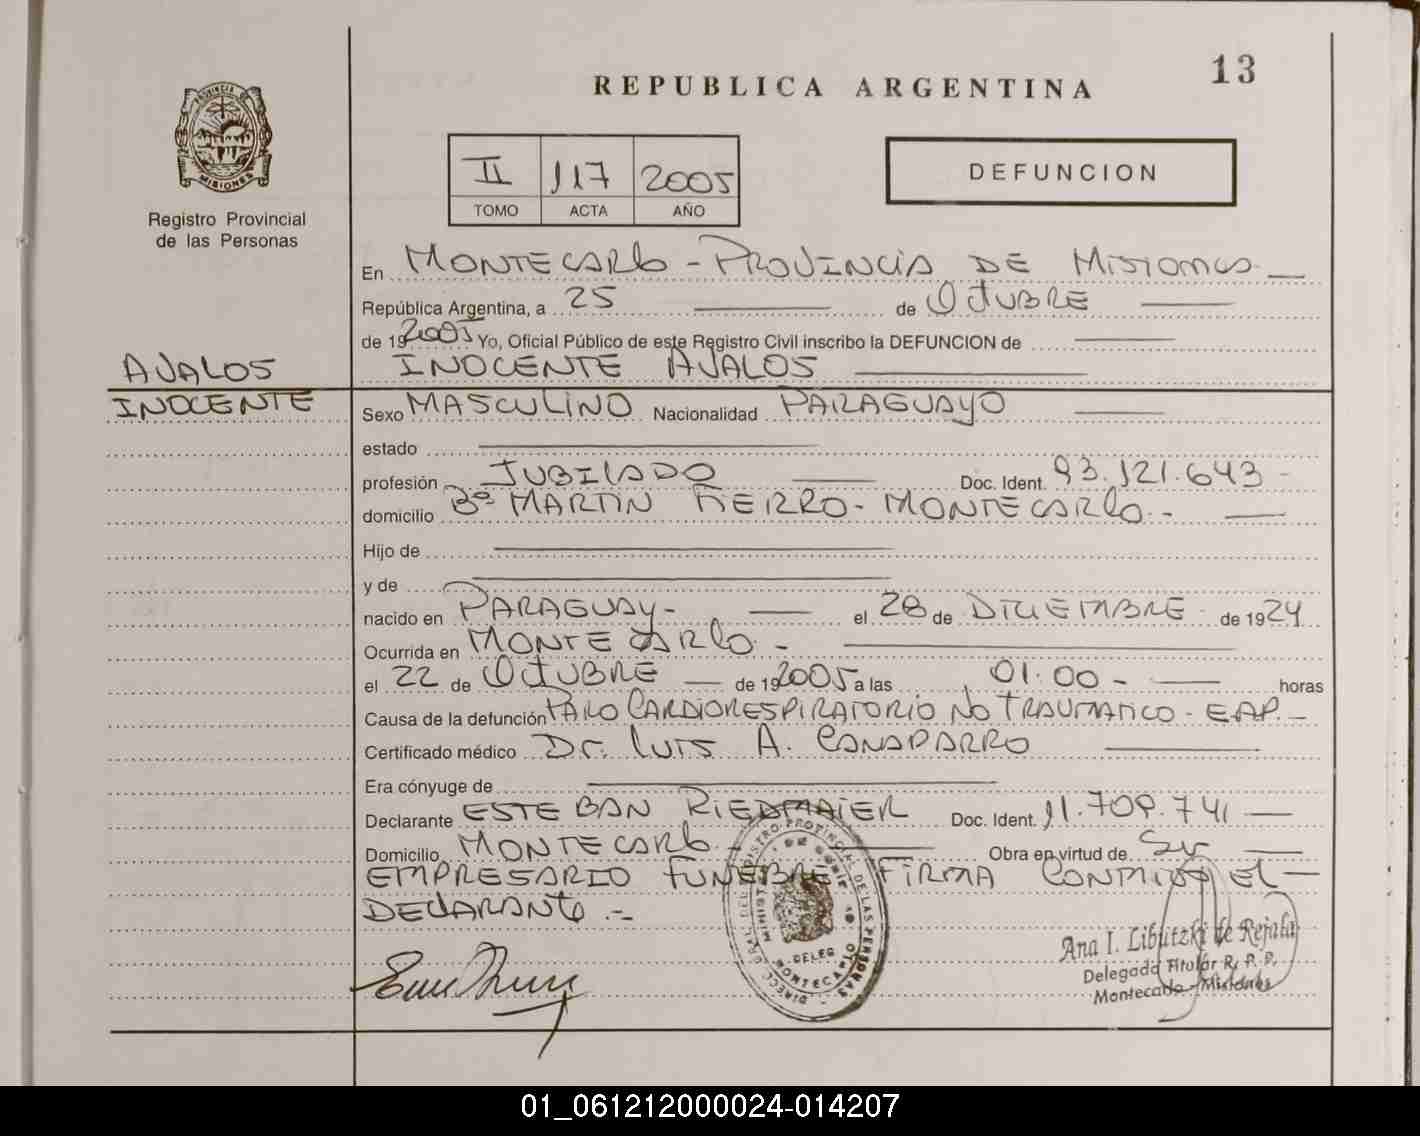 13
REPUBLICA ARGENTINA
PROVINCIA DE
MISIONES
Registro Provincial
de las Personas
DEFUNCION
II 117 2005
TOMO ACTA AÑO
En MONTECARLO - PROVINCIA DE MISIONES
República Argentina, a 25 de OCTUBRE
de 19 2005 Yo, Oficial Público de este Registro Civil inscribo la DEFUNCION de
AVALOS
INOCENTE AVALOS
INOCENTE
Sexo MASCULINO Nacionalidad PARAGUAYO
estado
profesión JUBILADO Doc. Ident. 93.121.643 -
domicilio Bº MARTIN FIERRO - MONTECARLO -
Hijo de
y de
nacido en PARAGUAY - el 28 de DICIEMBRE de 1924
Ocurrida en MONTECARLO -
el 22 de OCTUBRE de 19 2005 a las 01.00 - horas
Causa de la defunción PARO CARDIORESPIRATORIO NO TRAUMATICO - EAP. -
Certificado médico Dr. LUIS A. CANAPARRO
Era cónyuge de
Declarante ESTEBAN RIEDMAIER Doc. Ident. 11.709.741
Domicilio MONTECARLO Obra en virtud de Ser
EMPRESARIO FUNEBRE FIRMA CONMIGO EL
DECLARANTE. -
DIRECC. GRAL. DEL REGISTRO PROVINCIAL DE LAS PERSONAS
DELEG.
MONTECARLO
Ana I. Libutzki de Rejala
Delegada Titular R. P. P.
Montecarlo - Misiones
01_061212000024-014207